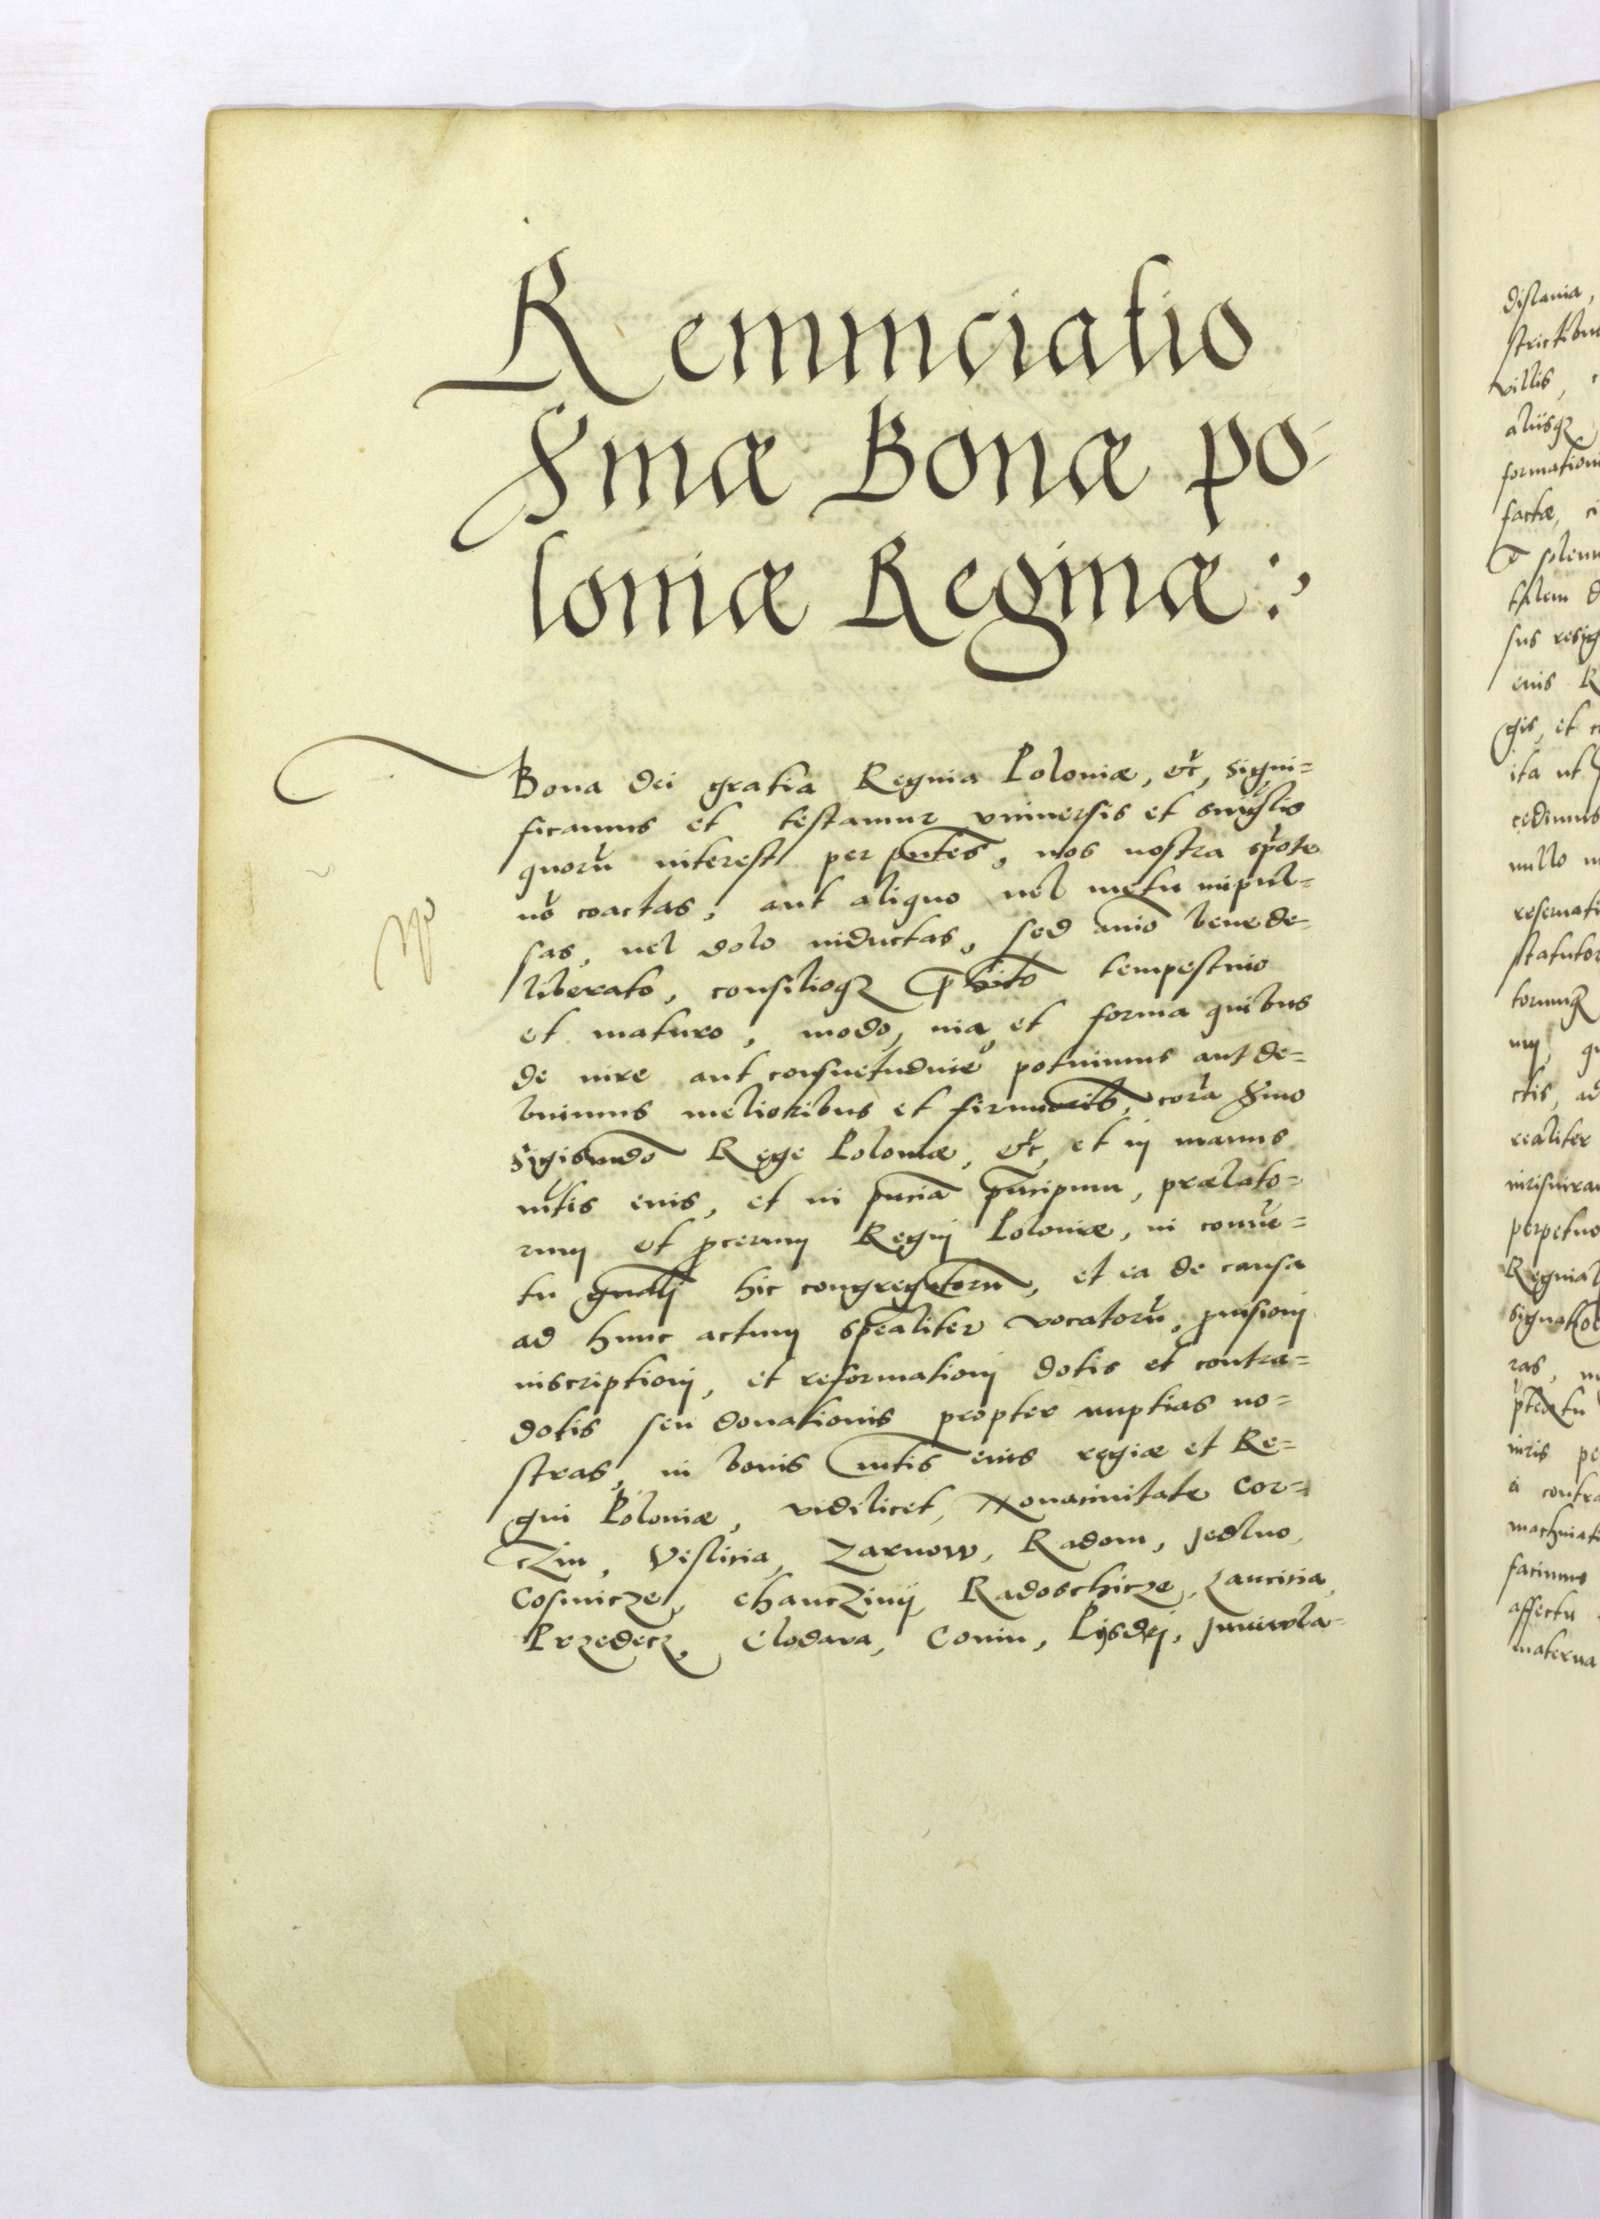 Renunciatio
Sːmæ Bonæ Po-
loniæ Reginæ:
Bona dei gratia Regina Poloniæ, etc, signi=
ficamus et testamur vniuersis et singulis
quorū interest per pñtes, nos nostra spōte
nō coactas, aut aliquo uel metu impul=
sas, uel dolo inductas, sed aniō bene de=
liberato, consilioqꝫ tempestiuo
et maturo, modo, uia, et forma quibus
de iure aut consuetudine potuimus aut de=
buimus melioribus et firmiorib, corā Sːmo
Sigismūdo Rege Poloniæ, etc, et in manus
mtis eius, et in pñcia pñcipum, prælato=
rum et procerum Regni Poloniæ, in conuē=
tu gñali hic congregatorū, et ea de causa
ad hunc actum spealiter vocatorū, prouisioni
inscriptioni, et reformationi dotis et contra=
dotis seu donationis propter nuptias no=
stras, in bonis mtis eius regiæ et Re=
gni Poloniæ, vidilicet, Nouaciuitate Cor=
czin, Vislicia, Zarnow, Radom, Jedlno,
Cosinicze, Chanczinij, Radoschicze, Lancicia,
Przedecz, Clodava, Conin, Pijsdrj, Juniwla=
distauia,
villis,
aliisqꝫ
factæ,
sus
eius
gis, et
ita ut
cedimus
nullo
realiter
perpetuo
ras,
iuris
facimus
affectu
materna